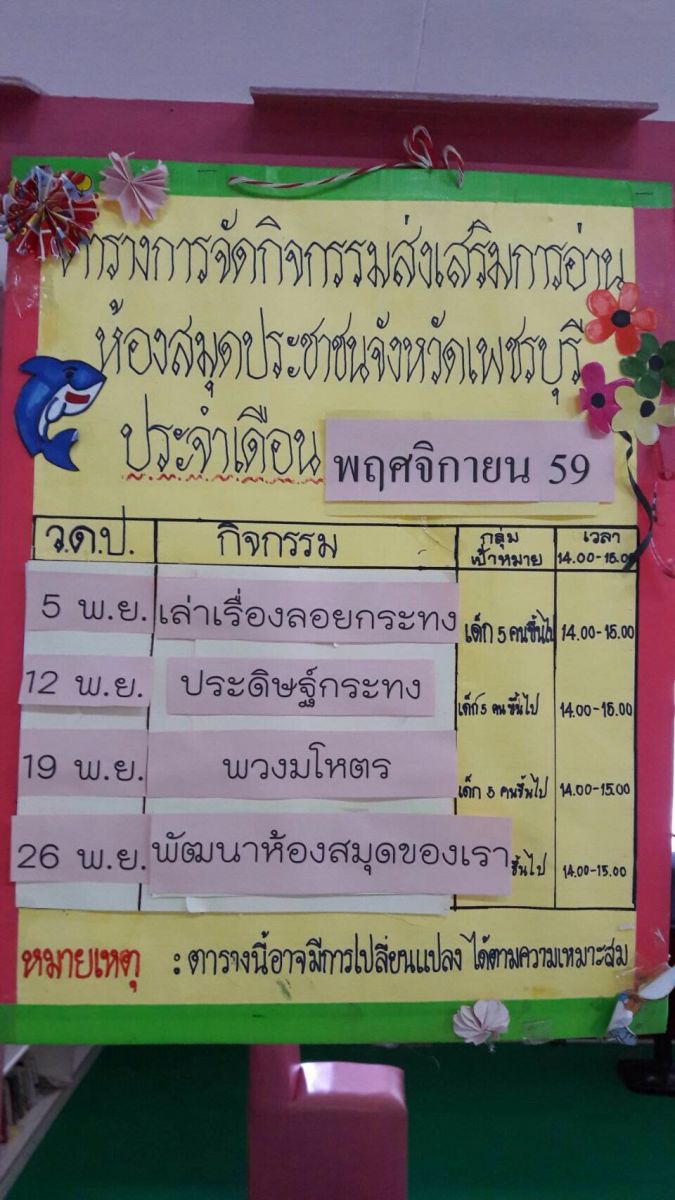 ตารางการจัดกิจกรรมส่งเสริมการอ่าน
ห้องสมุดประชาชนจังหวัดเพชรบุรี
ประจำเดือน พฤศจิกายน 59
ว.ด.ป. กิจกรรม กลุ่มเป้าหมาย เวลา 14.00-15.00
5 พ.ย. เล่าเรื่องลอยกระทง เด็ก 5 คนขึ้นไป 14.00-15.00
12 พ.ย. ประดิษฐ์กระทง เด็ก 5 คน ขึ้นไป 14.00-15.00
19 พ.ย. พวงมโหตร เด็ก 5 คนขึ้นไป 14.00-15.00
26 พ.ย. พัฒนาห้องสมุดของเรา ขึ้นไป 14.00-15.00
หมายเหตุ : ตารางนี้อาจมีการเปลี่ยนแปลง ได้ตามความเหมาะสม